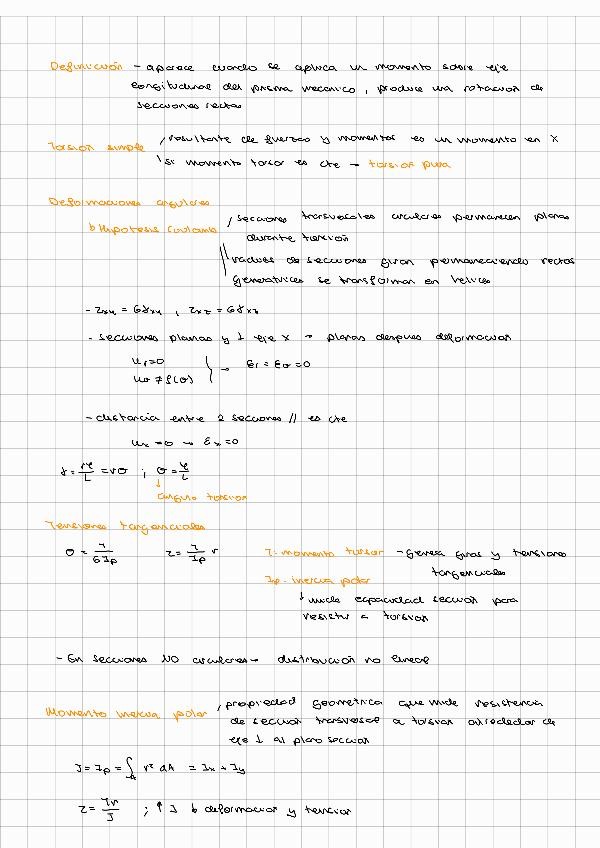 Definición - aparece cuando se aplica un momento sobre eje
longitudinal del prisma mecánico, produce una rotación de
secciones rectas
Torsión simple / resultante de fuerzas y momentos es un momento en X
\ si momento torsor es cte → torsión pura
Deformaciones angulares
↳ Hipótesis Coulomb / secciones trasversales circulares permanecen planas
durante torsión
\\ radios de secciones giran permaneciendo rectos
generatrices se transforman en hélices
- τxy = Gγxy , τxz = Gγxz
- secciones planas y ⊥ eje x → planas despues deformación
ur=0
uσ ≠ f(σ) } → εr = εσ = 0
- distancia entre 2 secciones // es cte
ux = 0 → εx = 0
γ = rφ/L = rθ ; θ = φ/L
↓
ángulo torsión
Tensiones tangenciales
θ = T/GIp τ = T/Ip r T - momento torsor - Genera giros y tensiones
tangenciales
Ip - inercia polar
↓ mide capacidad sección para
resistir a torsión
- En secciones NO circulares → distribución no lineal
Momento inercia polar / propiedad geométrica que mide resistencia
de sección trasversal a torsión alrededor de
eje ⊥ al plano sección
J = Ip = ∫A r² dA = Ix + Iy
τ = Tr/J ; ↑ J ↳ deformación y tensión